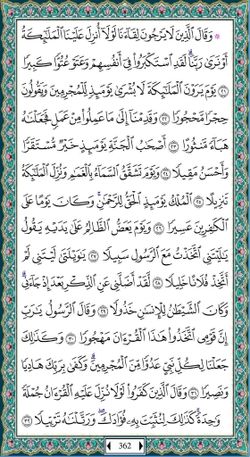 ۞ وَقَالَ ٱلَّذِينَ لَا يَرْجُونَ لِقَآءَنَا لَوْلَآ أُنزِلَ عَلَيْنَا ٱلْمَلَٰٓئِكَةُ
أَوْ نَرَىٰ رَبَّنَا ۗ لَقَدِ ٱسْتَكْبَرُوا۟ فِىٓ أَنفُسِهِمْ وَعَتَوْ عُتُوًّا كَبِيرًا
٢١ يَوْمَ يَرَوْنَ ٱلْمَلَٰٓئِكَةَ لَا بُشْرَىٰ يَوْمَئِذٍ لِّلْمُجْرِمِينَ وَيَقُولُونَ
حِجْرًا مَّحْجُورًا ٢٢ وَقَدِمْنَآ إِلَىٰ مَا عَمِلُوا۟ مِنْ عَمَلٍ فَجَعَلْنَٰهُ
هَبَآءً مَّنثُورًا ٢٣ أَصْحَٰبُ ٱلْجَنَّةِ يَوْمَئِذٍ خَيْرٌ مُّسْتَقَرًّا
وَأَحْسَنُ مَقِيلًا ٢٤ وَيَوْمَ تَشَقَّقُ ٱلسَّمَآءُ بِٱلْغَمَٰمِ وَنُزِّلَ ٱلْمَلَٰٓئِكَةُ
تَنزِيلًا ٢٥ ٱلْمُلْكُ يَوْمَئِذٍ ٱلْحَقُّ لِلرَّحْمَٰنِ ۚ وَكَانَ يَوْمًا عَلَى
ٱلْكَٰفِرِينَ عَسِيرًا ٢٦ وَيَوْمَ يَعَضُّ ٱلظَّالِمُ عَلَىٰ يَدَيْهِ يَقُولُ
يَٰلَيْتَنِى ٱتَّخَذْتُ مَعَ ٱلرَّسُولِ سَبِيلًا ٢٧ يَٰوَيْلَتَىٰ لَيْتَنِى لَمْ
أَتَّخِذْ فُلَانًا خَلِيلًا ٢٨ لَّقَدْ أَضَلَّنِى عَنِ ٱلذِّكْرِ بَعْدَ إِذْ جَآءَنِى ۗ
وَكَانَ ٱلشَّيْطَٰنُ لِلْإِنسَٰنِ خَذُولًا ٢٩ وَقَالَ ٱلرَّسُولُ يَٰرَبِّ
إِنَّ قَوْمِى ٱتَّخَذُوا۟ هَٰذَا ٱلْقُرْءَانَ مَهْجُورًا ٣٠ وَكَذَٰلِكَ
جَعَلْنَا لِكُلِّ نَبِىٍّ عَدُوًّا مِّنَ ٱلْمُجْرِمِينَ ۗ وَكَفَىٰ بِرَبِّكَ هَادِيًا
وَنَصِيرًا ٣١ وَقَالَ ٱلَّذِينَ كَفَرُوا۟ لَوْلَا نُزِّلَ عَلَيْهِ ٱلْقُرْءَانُ جُمْلَةً
وَٰحِدَةً ۚ كَذَٰلِكَ لِنُثَبِّتَ بِهِۦ فُؤَادَكَ ۖ وَرَتَّلْنَٰهُ تَرْتِيلًا ٣٢
362